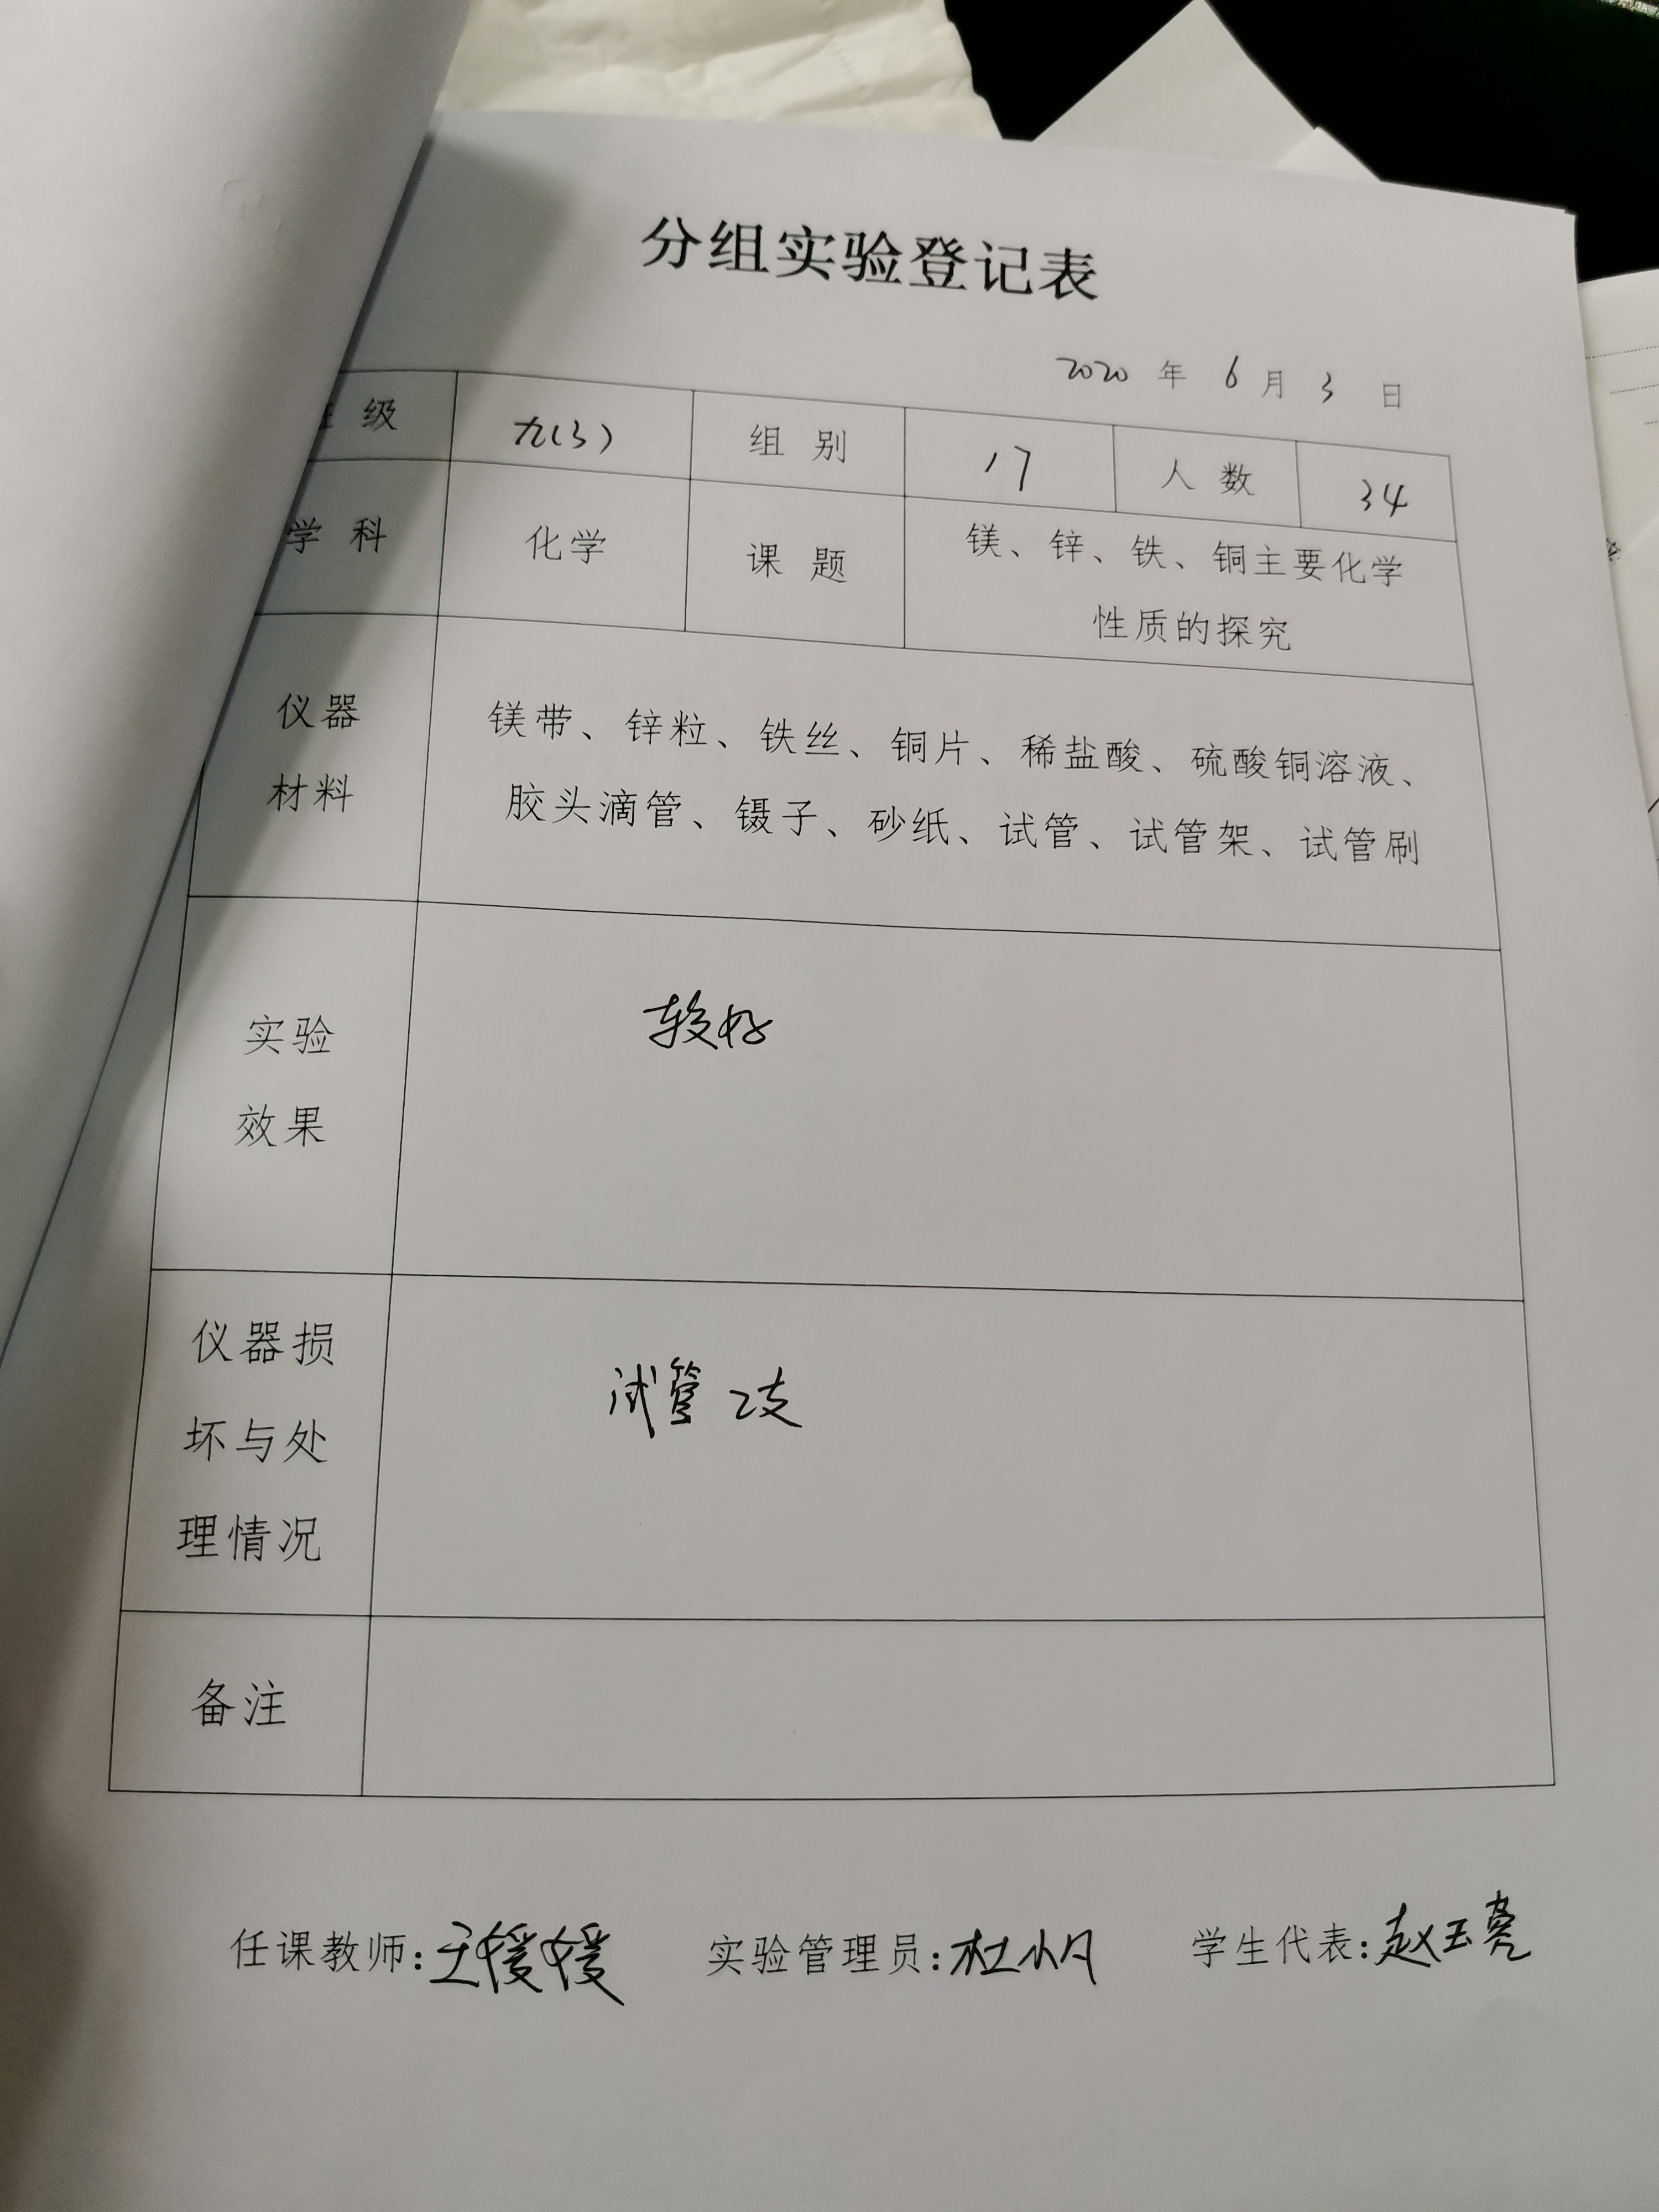 分组实验登记表
2020 年 6 月 3 日
班 级 九(3) 组 别 17 人 数 34
学 科 化学 课 题 镁、锌、铁、铜主要化学
性质的探究
仪器
材料
镁带、锌粒、铁丝、铜片、稀盐酸、硫酸铜溶液、
胶头滴管、镊子、砂纸、试管、试管架、试管刷
实验
效果
较好
仪器损
坏与处
理情况
试管 2支
备注
任课教师:王媛媛 实验管理员:杜小凡 学生代表:赵玉亮